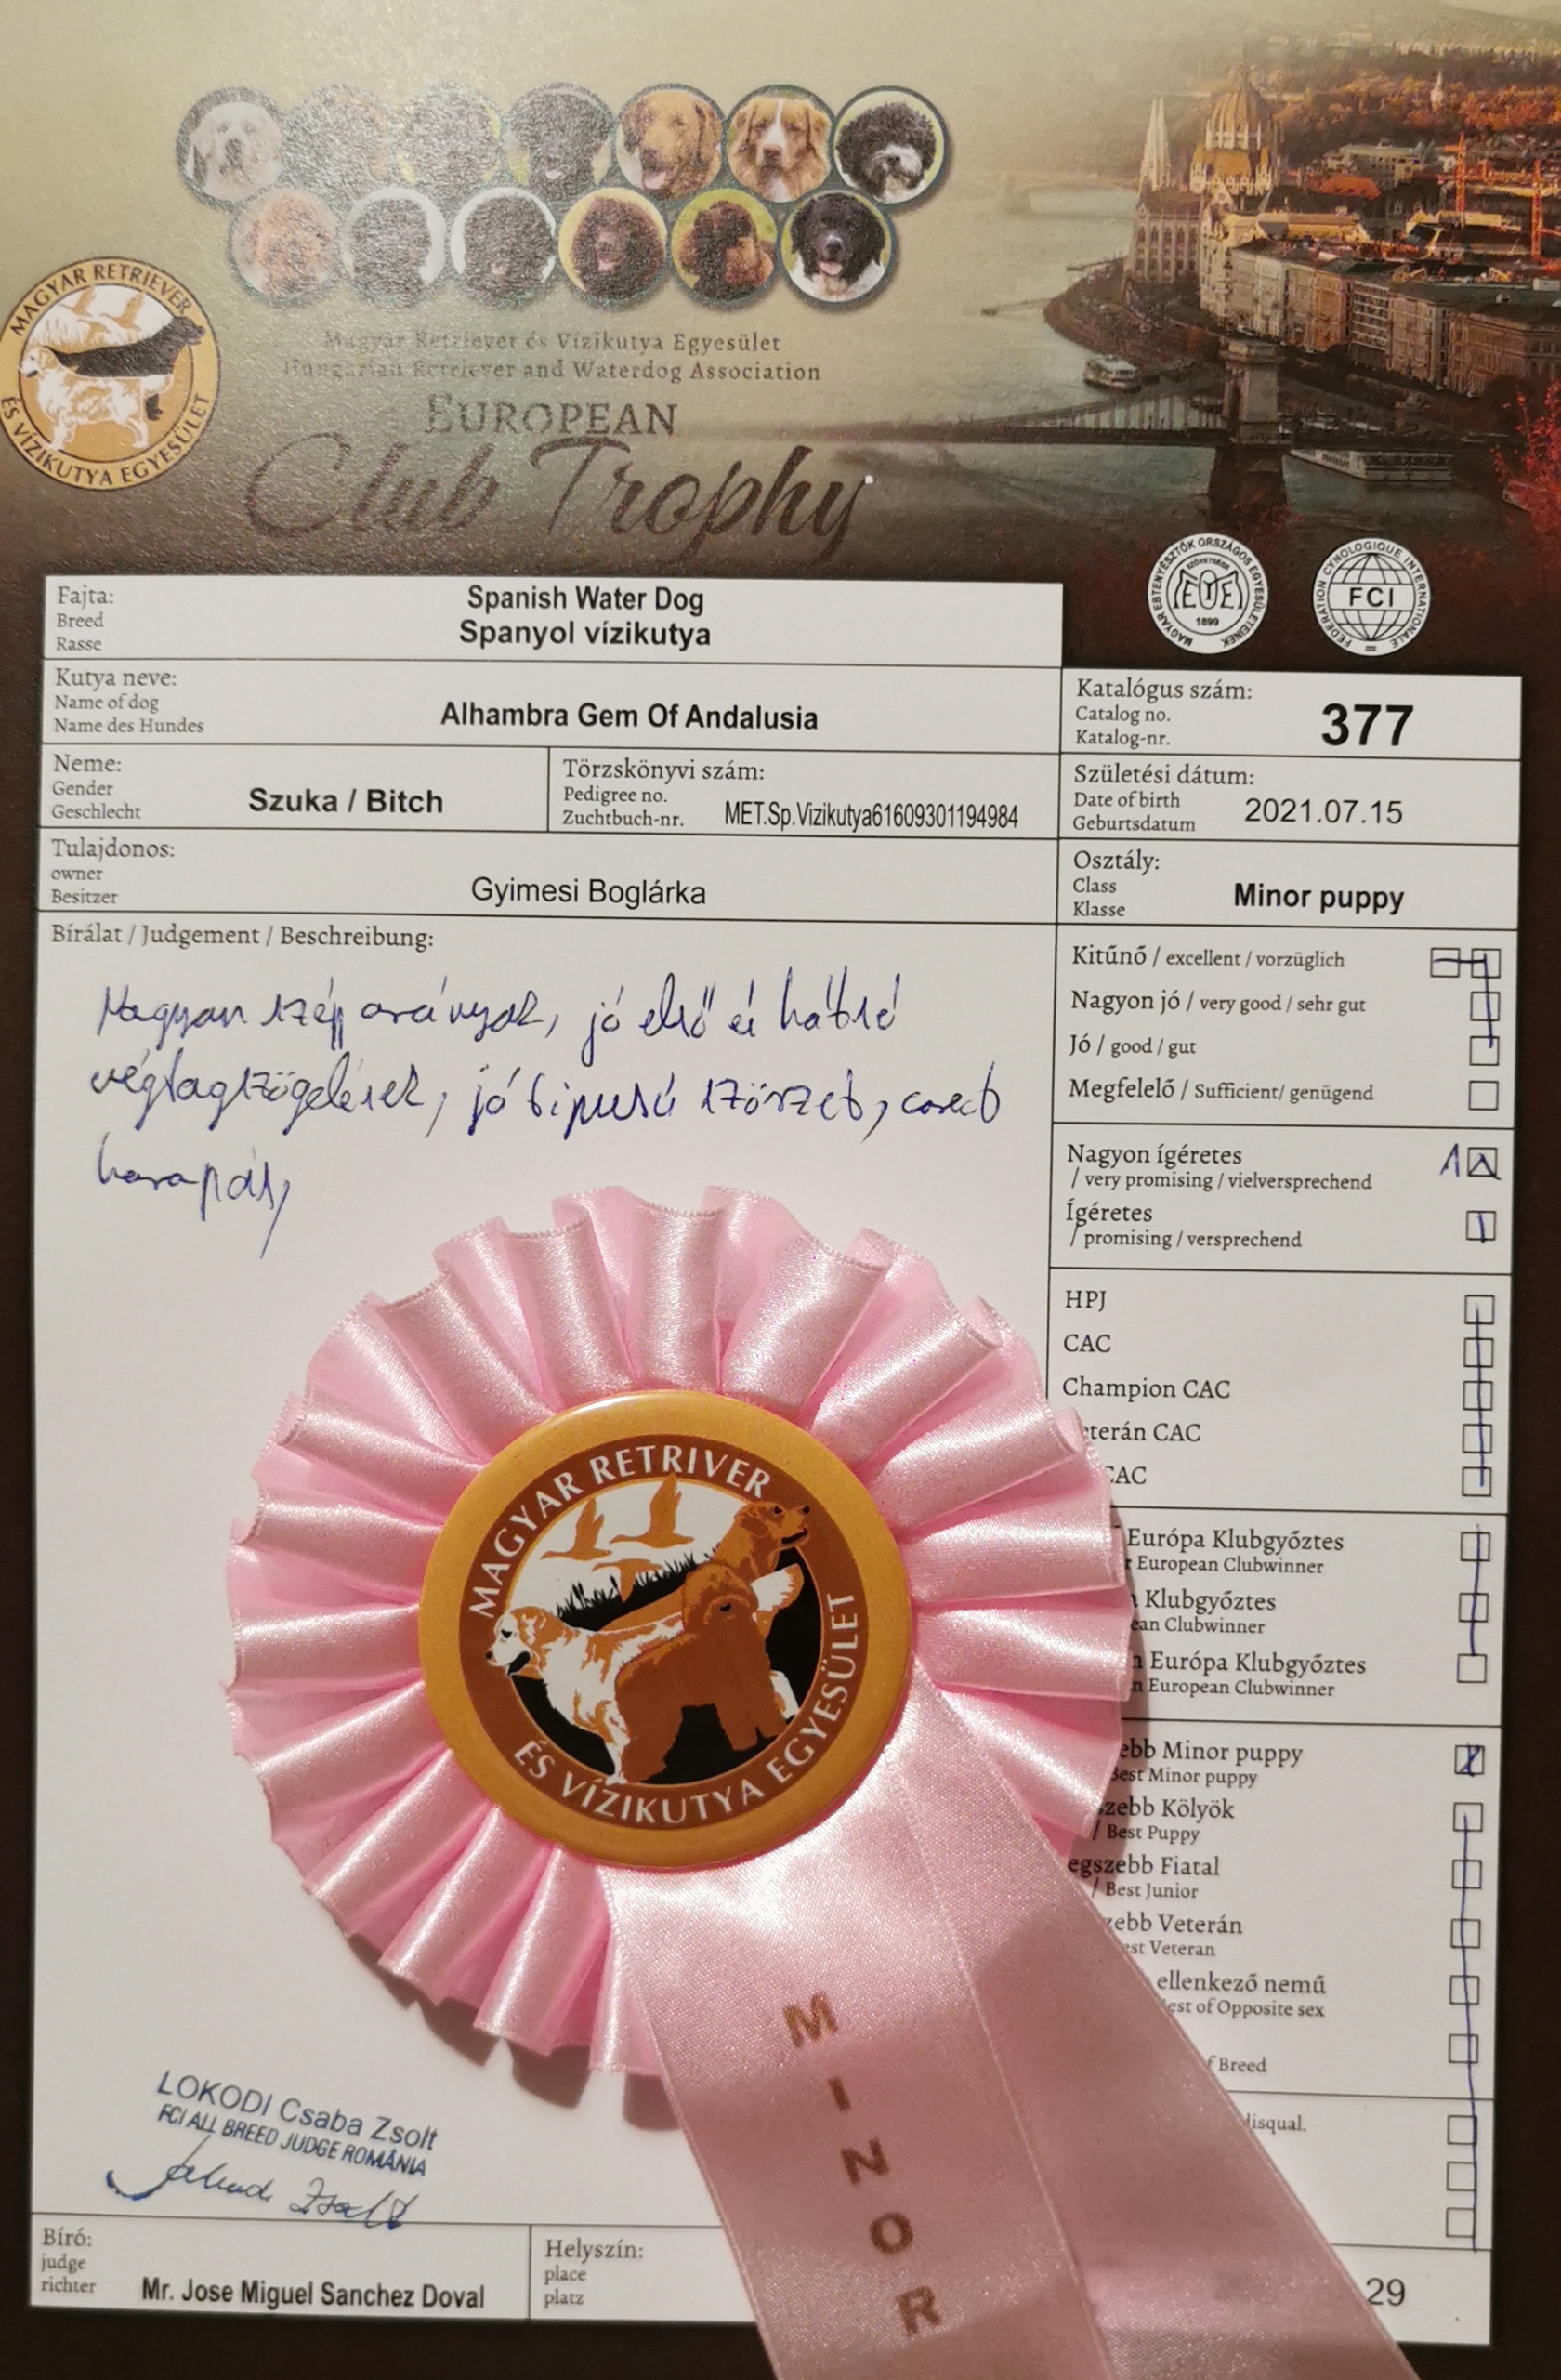 MAGYAR RETRIEVER
ÉS VÍZIKUTYA EGYESÜLET
Magyar Retriever és Vízikutya Egyesület
Hungarian Retriever and Waterdog Association
EUROPEAN
Club Trophy
MAGYAR EBTENYÉSZTŐK ORSZÁGOS EGYESÜLETEINEK
SZÖVETSÉGE
MEOE
1899
FEDERATION CYNOLOGIQUE INTERNATIONALE
FCI
Fajta:
Breed
Rasse
Spanish Water Dog
Spanyol vízikutya
Kutya neve:
Name of dog
Name des Hundes
Alhambra Gem Of Andalusia
Katalógus szám:
Catalog no.
Katalog-nr.
377
Neme:
Gender
Geschlecht
Szuka / Bitch
Törzskönyvi szám:
Pedigree no.
Zuchtbuch-nr.
MET.Sp.Vizikutya61609301194984
Születési dátum:
Date of birth
Geburtsdatum
2021.07.15
Tulajdonos:
owner
Besitzer
Gyimesi Boglárka
Osztály:
Class
Klasse
Minor puppy
Bírálat / Judgement / Beschreibung:
Nagyon szép arányok, jó első és hátsó
végtagszögelések, jó tipusú szőrzet, correct
harapás,
Kitűnő / excellent / vorzüglich
Nagyon jó / very good / sehr gut
Jó / good / gut
Megfelelő / Sufficient/ genügend
Nagyon ígéretes 1
/ very promising / vielversprechend
Ígéretes
/ promising / versprechend
HPJ
CAC
Champion CAC
eterán CAC
CAC
Európa Klubgyőztes
r European Clubwinner
Klubgyőztes
ean Clubwinner
n Európa Klubgyőztes
n European Clubwinner
ebb Minor puppy
Best Minor puppy
szebb Kölyök
/ Best Puppy
egszebb Fiatal
/ Best Junior
zebb Veterán
est Veteran
ellenkező nemű
est of Opposite sex
f Breed
disqual.
MAGYAR RETRIVER
ÉS VÍZIKUTYA EGYESÜLET
MINOR
LOKODI Csaba Zsolt
FCI ALL BREED JUDGE ROMÂNIA
Bíró:
judge
richter
Mr. Jose Miguel Sanchez Doval
Helyszín:
place
platz
29